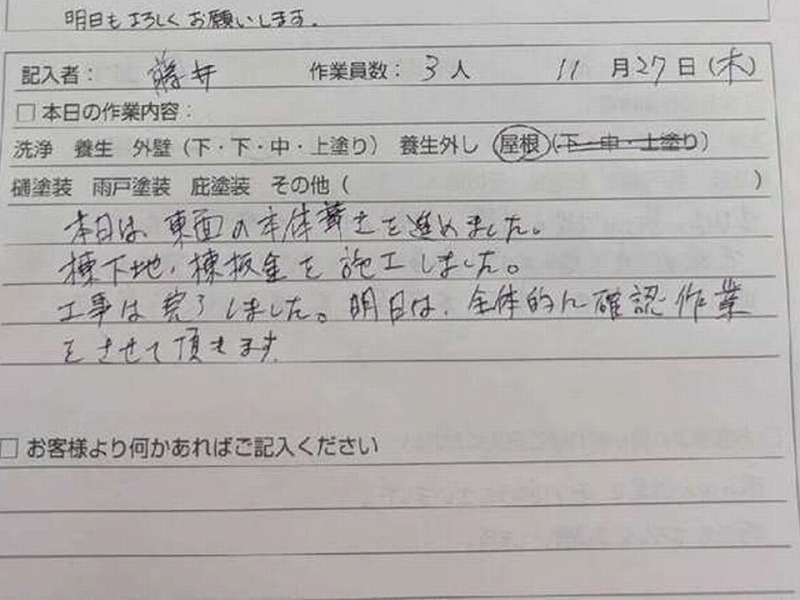 明日もよろしくお願いします。
記入者： 藤井 作業員数： 3人 11月27日（木）
□ 本日の作業内容：
洗浄 養生 外壁（下・下・中・上塗り） 養生外し 屋根（下・中・上塗り）
樋塗装 雨戸塗装 庇塗装 その他（ ）
本日は、東面の本体葺きを進めました。
棟下地、棟板金を施工しました。
工事は完了しました。明日は、全体的に確認作業
をさせて頂きます
□ お客様より何かあればご記入ください